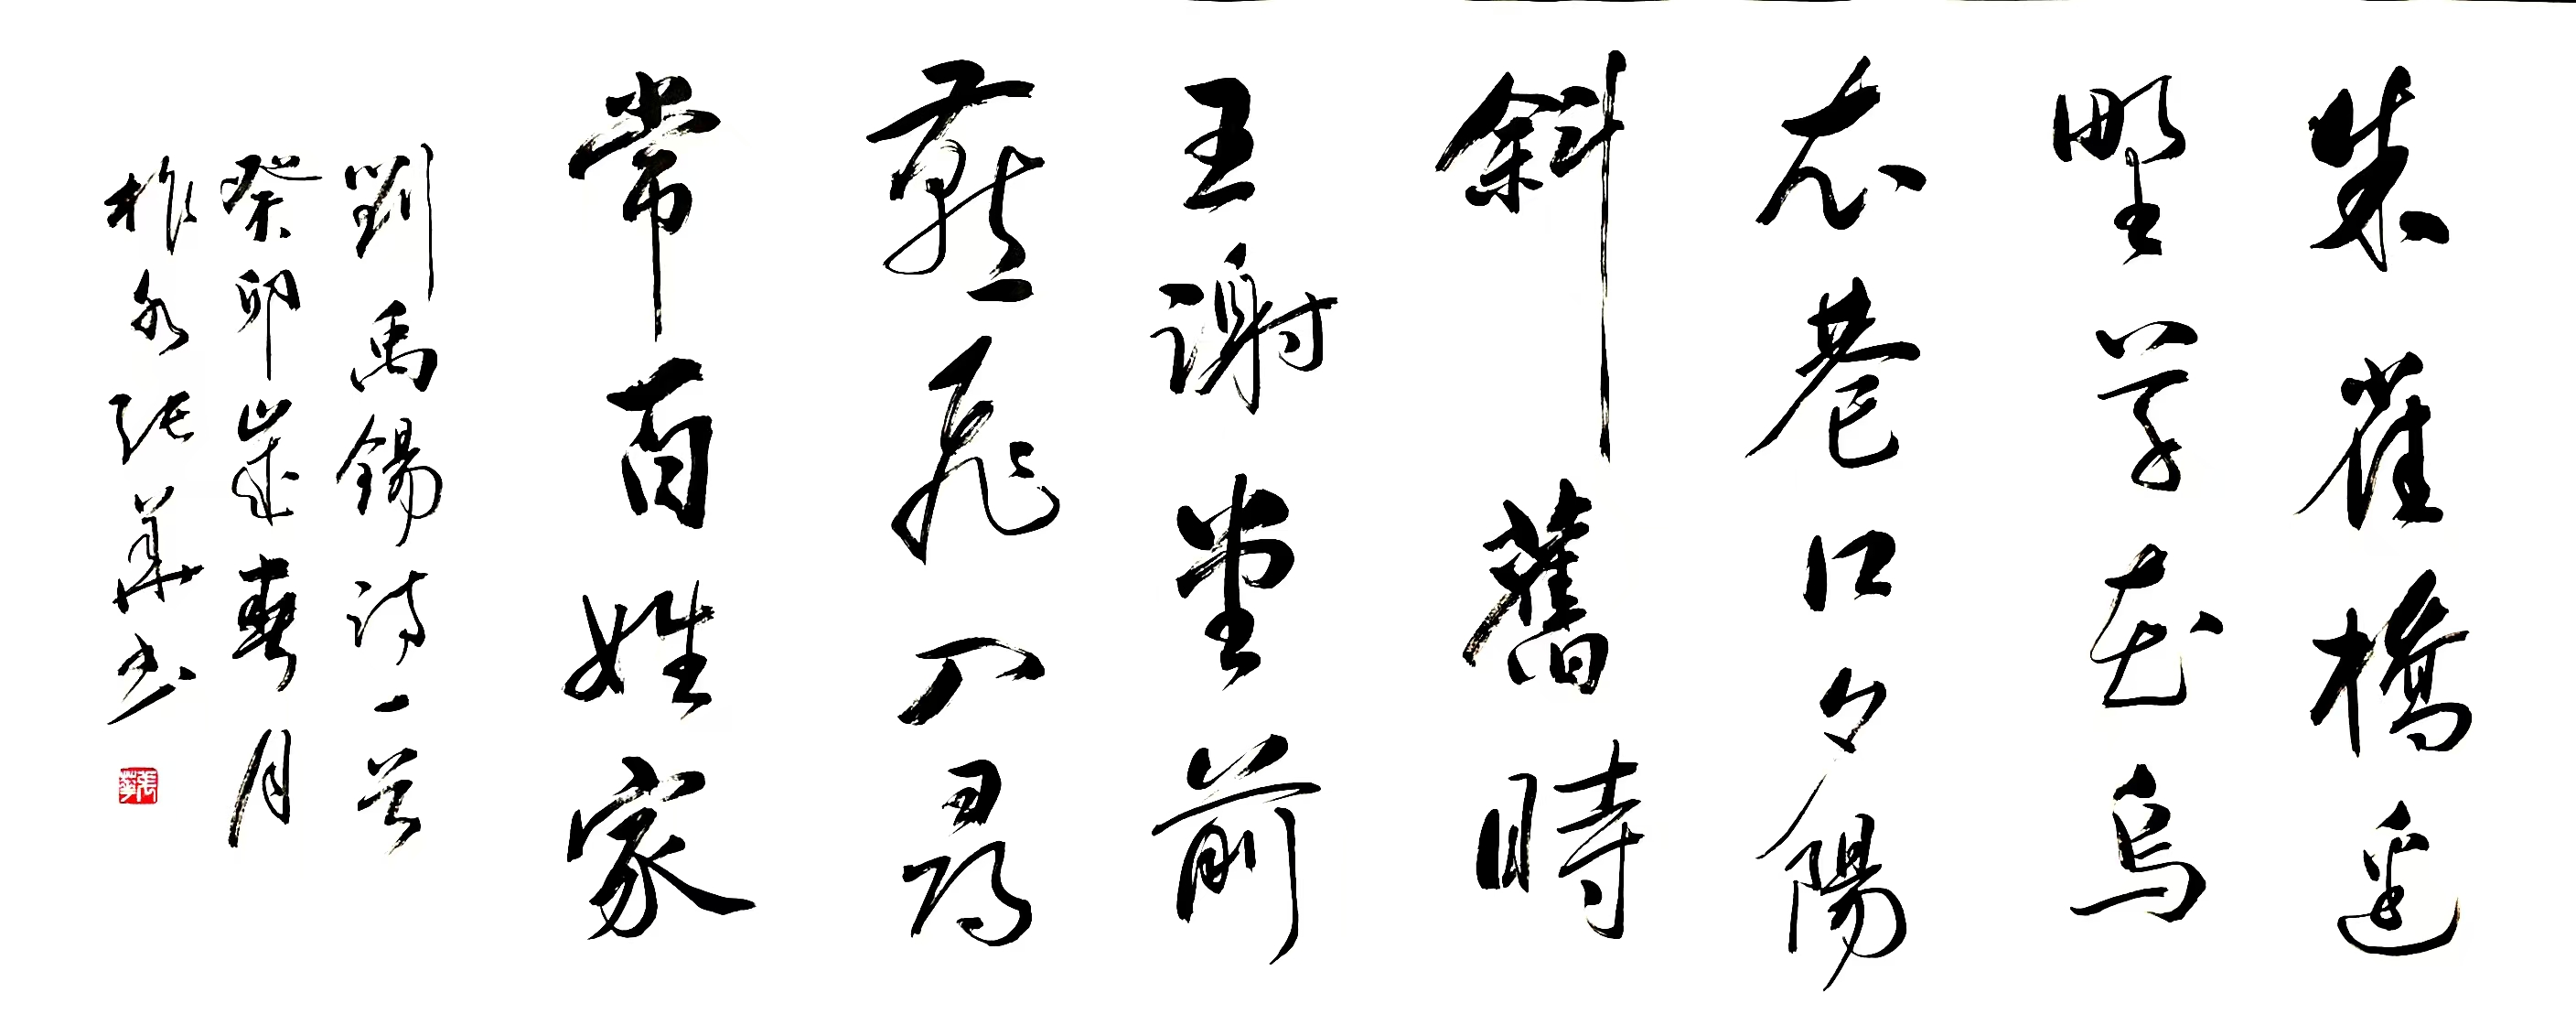 朱雀橋邊
野草花烏
衣巷口夕陽
斜舊時
王謝堂前
燕飛入尋
常百姓家
劉禹錫詩一首
癸卯歲春月
柞水張華书
張華